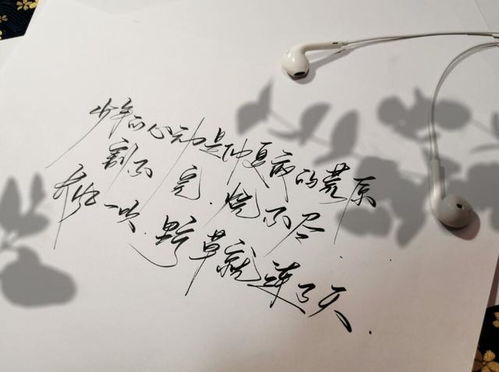 少年的心动是仲夏夜的荒原
割不完.烧不尽.
疾风一吹.野草就连了天.